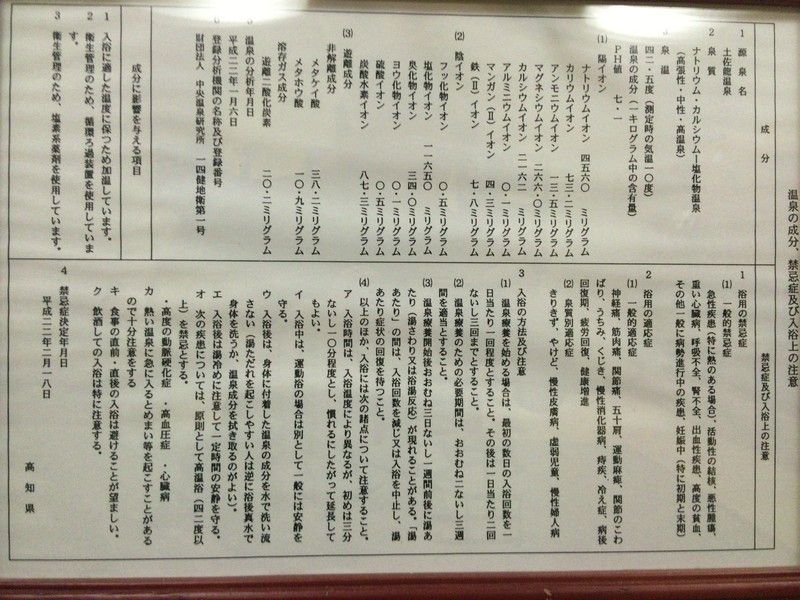 温泉の成分、禁忌症及び入浴上の注意
成分
1 源泉名
土佐龍温泉
2 泉質
ナトリウム・カルシウム―塩化物温泉
(高張性・中性・高温泉)
泉温
四二・五度(測定時の気温一〇度)
温泉の成分(一キログラム中の含有量)
PH値 七・一
(1) 陽イオン
ナトリウムイオン 四五六〇 ミリグラム
カリウムイオン 七三・二ミリグラム
アンモニウムイオン 一三・五ミリグラム
マグネシウムイオン 二六六・〇ミリグラム
カルシウムイオン 二一六二 ミリグラム
アルミニウムイオン 〇・一ミリグラム
マンガン(Ⅱ)イオン 四・三ミリグラム
鉄(Ⅱ)イオン 七・八ミリグラム
(2) 陰イオン
フッ化物イオン 〇・五ミリグラム
塩化物イオン 一一六五〇 ミリグラム
臭化物イオン 三四・〇ミリグラム
ヨウ化物イオン 〇・一ミリグラム
硫酸イオン 〇・五ミリグラム
炭酸水素イオン 八七・三ミリグラム
(3) 遊離成分
非解離成分
メタケイ酸 三八・二ミリグラム
メタホウ酸 一〇・九ミリグラム
溶存ガス成分
遊離二酸化炭素 二〇・二ミリグラム
5 温泉の分析年月日
平成二二年一月六日
登録分析機関の名称及び登録番号
財団法人 中央温泉研究所 一四健地衛第一号
成分に影響を与える項目
1 入浴に適した温度に保つため加温しています。
2 衛生管理のため、循環ろ過装置を使用していま
す。
3 衛生管理のため、塩素系薬剤を使用しています。
禁忌症及び入浴上の注意
1 浴用の禁忌症
(1) 一般的禁忌症
急性疾患(特に熱のある場合)、活動性の結核、悪性腫瘍、
重い心臓病、呼吸不全、腎不全、出血性疾患、高度の貧血、
その他一般に病勢進行中の疾患、妊娠中(特に初期と末期)
2 浴用の適応症
(1) 一般的適応症
神経痛、筋肉痛、関節痛、五十肩、運動麻痺、関節のこわ
ばり、うちみ、くじき、慢性消化器病、痔疾、冷え症、病後
回復期、疲労回復、健康増進
(2) 泉質別適応症
きりきず、やけど、慢性皮膚病、虚弱児童、慢性婦人病
3 入浴の方法及び注意
(1) 温泉療養を始める場合は、最初の数日の入浴回数を一
日当たり一回程度とすること。その後は一日当たり二回
ないし三回までとすること。
(2) 温泉療養のための必要期間は、おおむね二ないし三週
間を適当とすること。
(3) 温泉療養開始後おおむね三日ないし一週間前後に湯あ
たり(湯さわり又は浴湯反応)が現れることがある。「湯
あたり」の間は、入浴回数を減じ又は入浴を中止し、湯
あたり症状の回復を待つこと。
(4) 以上のほか、入浴には次の諸点について注意すること。
ア 入浴時間は、入浴温度により異なるが、初めは三分
ないし一〇分程度とし、慣れるにしたがって延長して
もよい。
イ 入浴中は、運動浴の場合は別として一般には安静を
守る。
ウ 入浴後は、身体に付着した温泉の成分を水で洗い流
さない(湯ただれを起こしやすい人は逆に浴後真水で
身体を洗うか、温泉成分を拭き取るのがよい)。
エ 入浴後は湯冷めに注意して一定時間の安静を守る。
オ 次の疾患については、原則として高温浴(四二度以
上)を禁忌とする。
・高度の動脈硬化症 ・高血圧症 ・心臓病
カ 熱い温泉に急に入るとめまい等を起こすことがある
ので十分注意をする
キ 食事の直前・直後の入浴は避けることが望ましい。
ク 飲酒しての入浴は特に注意する。
4 禁忌症決定年月日
平成二二年二月一八日
高知県